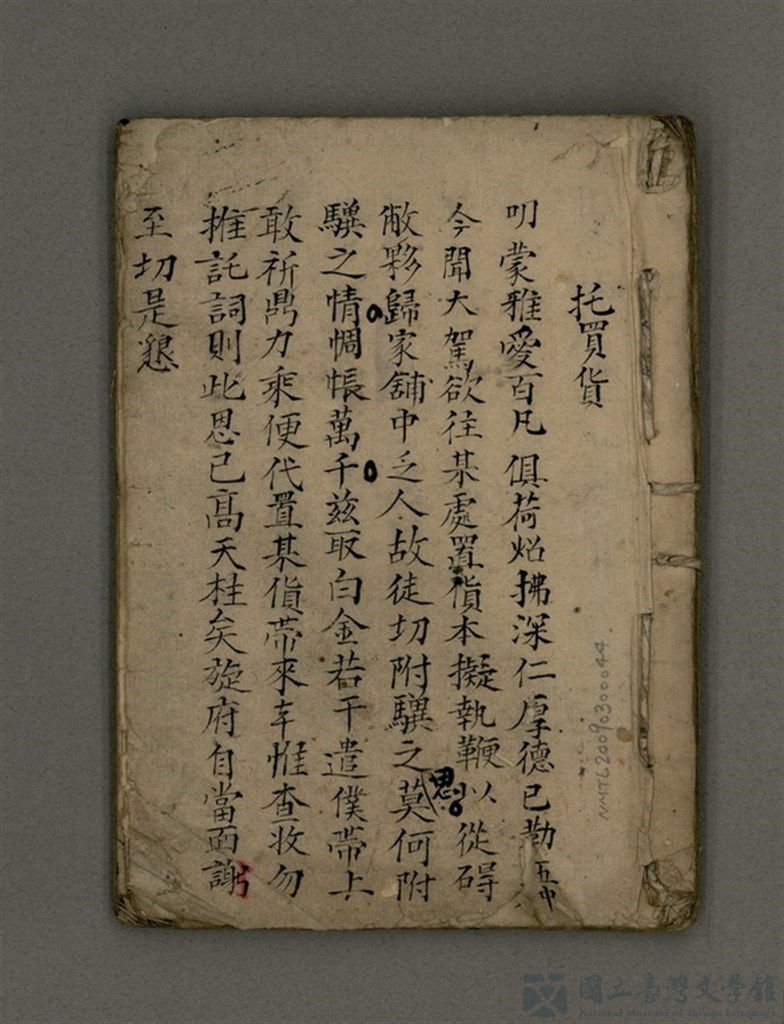 托買貨
叨蒙雅愛百凡俱荷炤拂深仁厚德已勒五中
今聞大駕欲往某處置貨本擬執鞭以從碍
敝夥歸家舖中乏人故徒切附驥之思莫何附
驥之情惆悵萬千兹取白金若干遣僕帶上
敢祈鼎力乘便代置某貨帶來幸惟查收勿
推託詞則此恩已高天柱矣旋府自當面謝
至切是懇
NMTL20090300044
國立臺灣文學館
National Museum of Taiwan Literature